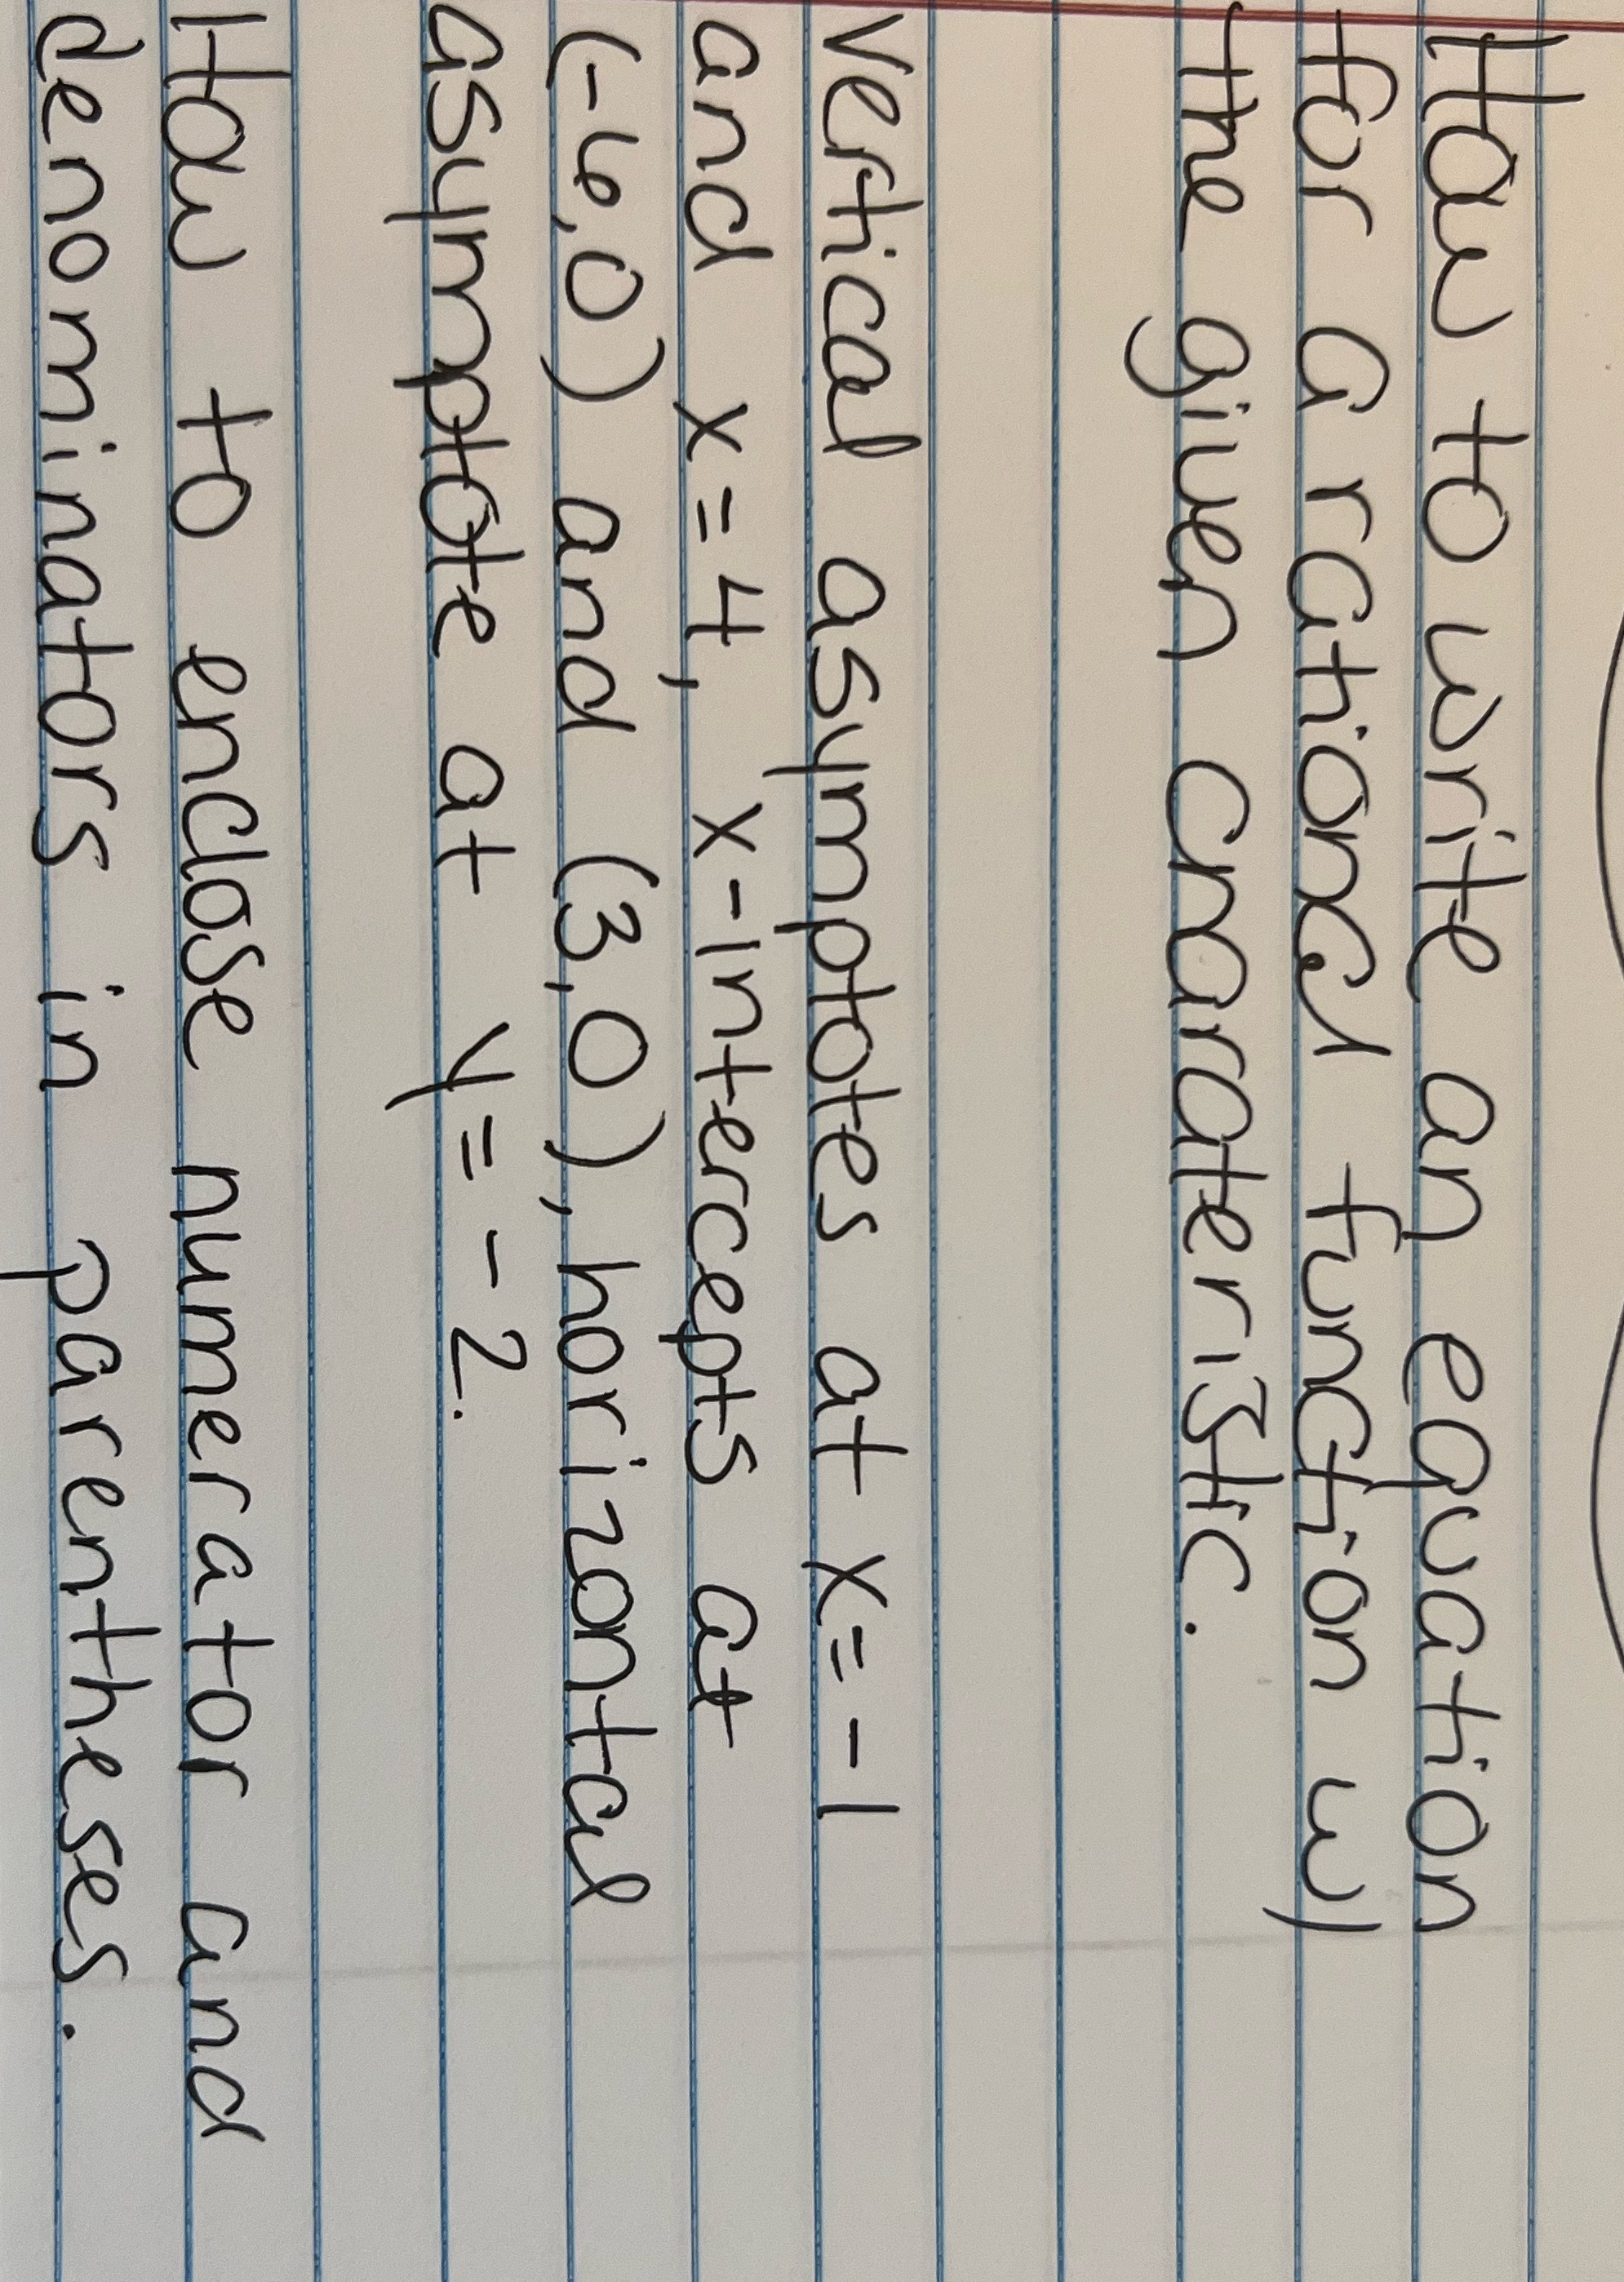 How to write an equation
for a rational function w/
the given charateristic.
Vertical asymptotes at x = -1
and x = 4, x-intercepts at
(-6,0) and (3,0), horizontal
asymptote at y = -2.
How to enclose numerator and
denominators in parentheses.